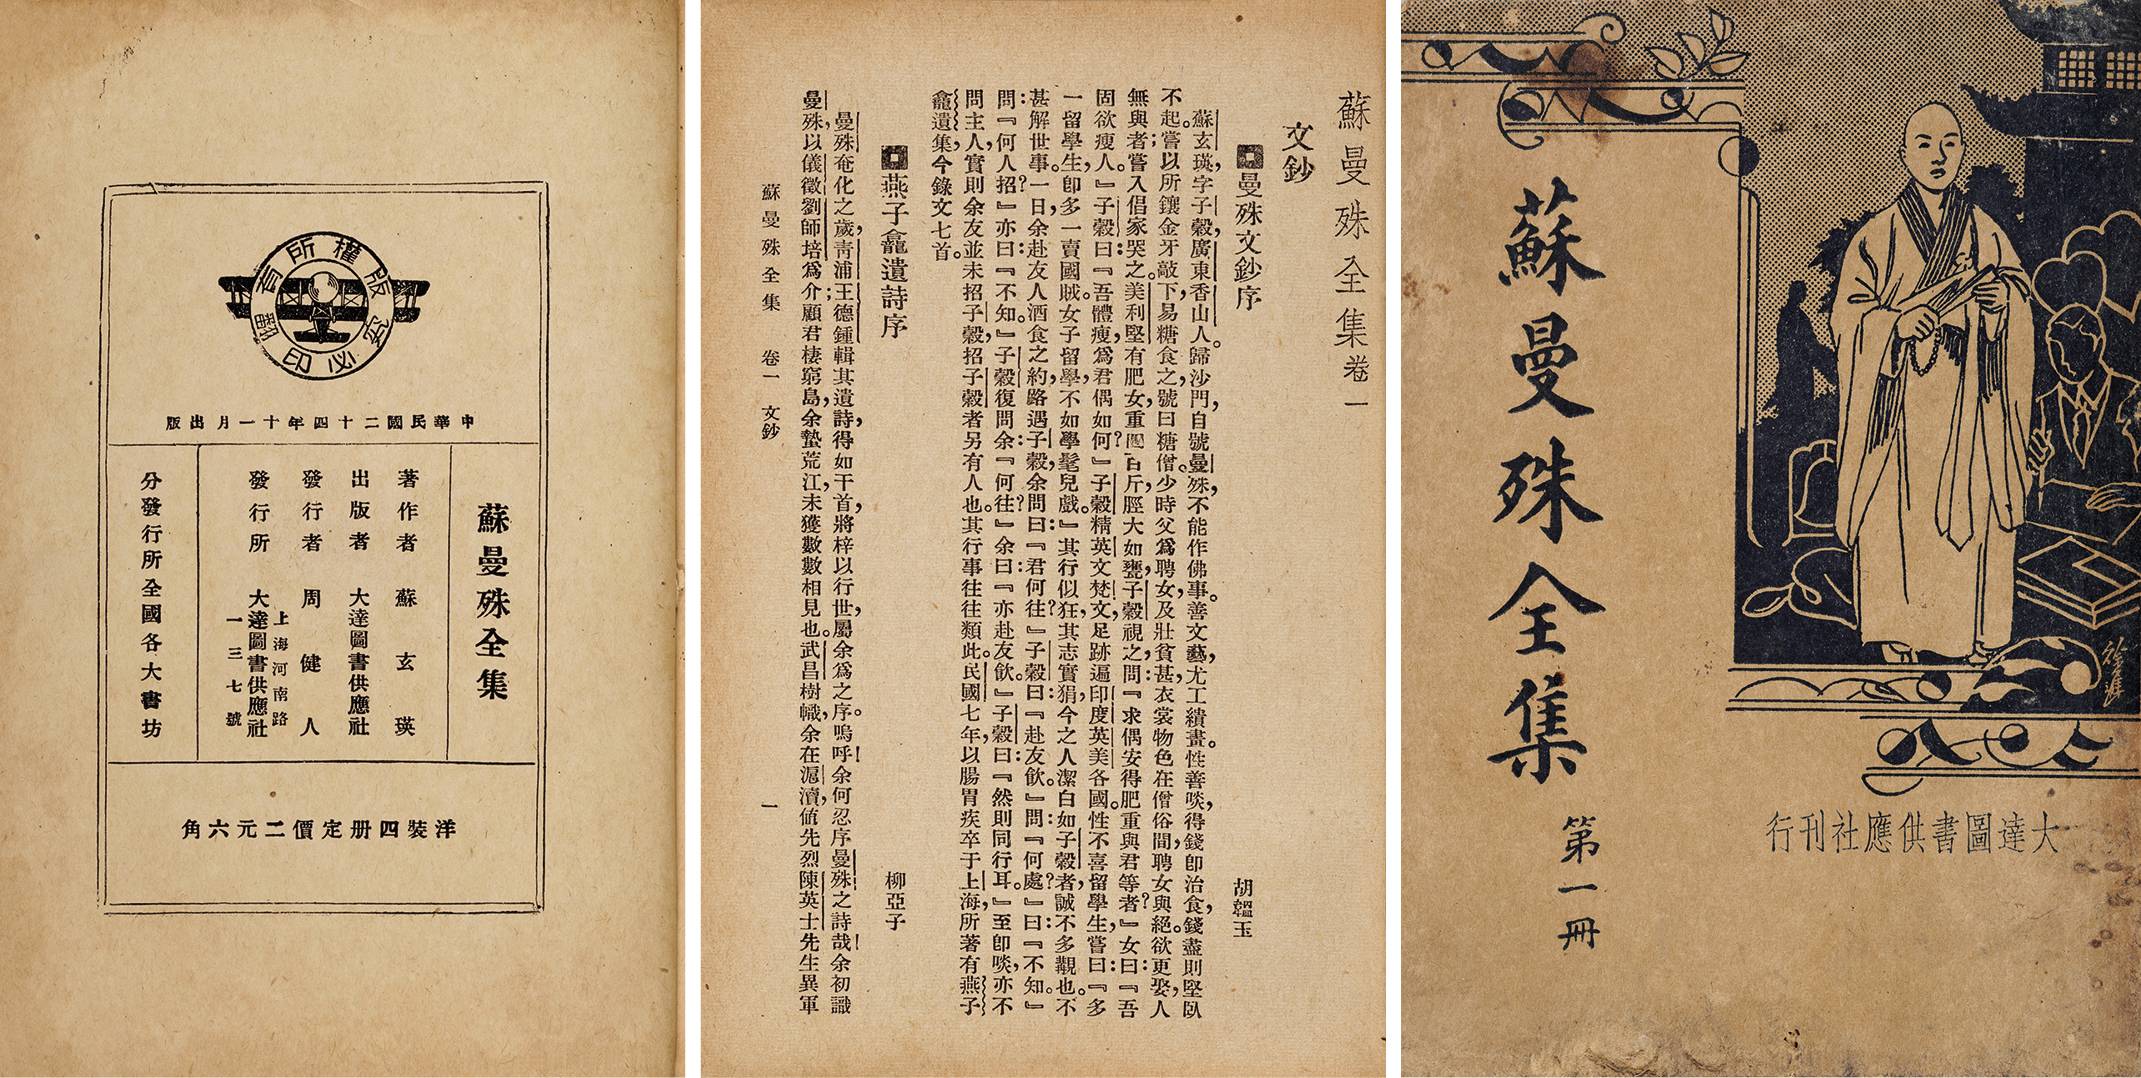 蘇曼殊全集
第一冊
大達圖書供應社刊行
蘇曼殊全集卷一
文鈔
曼殊文鈔序　胡韞玉
蘇玄瑛，字子穀，廣東香山人。歸沙門，自號曼殊，不能作佛事。善文藝，尤工繢畫。性善啖，得錢卽治食，錢盡則堅臥
不起。嘗以所鑲金牙敲下，易糖食之，號曰糖僧。少時父爲聘女，及壯貧甚，衣裳物色在僧俗間，聘女與絕。欲更娶，人
無與者；嘗入倡家哭之。美利堅有肥女，重百斤，脛大如甕，子穀視之，問：『求偶安得肥重與君等者？』女曰：『吾
固欲瘦人。』子穀曰：『吾體瘦，爲君偶如何？』子穀精英文梵文，足跡遍印度英美各國。性不喜留學生，嘗曰：『多
一留學生，卽多一賣國賊。女子留學，不如學髦兒戲。』其行似狂，其志實狷，今之人潔白如子穀者，誠不多觀也。不
甚解世事。一日，余赴友人酒食之約，路遇子穀，余問曰：『君何往？』子穀曰：『赴友飲。』問：『何處？』曰：『不知。』
問：『何人招？』亦曰：『不知。』子穀復問余：『何往？』余曰：『亦赴友飲。』子穀曰：『然則同行耳。』至卽啖，亦不
問主人，實則余友並未招子穀，招子穀者另有人也。其行事往往類此。民國七年，以腸胃疾卒于上海，所著有燕子
龕遺集，今錄文七首。
燕子龕遺詩序　柳亞子
曼殊奄化之歲，靑浦王德鍾輯其遺詩，得如干首，將梓以行世，屬余爲之序。嗚呼！余何忍序曼殊之詩哉！余初識
曼殊，以儀徵劉師培爲介；顧君棲窮島，余蟄荒江，未獲數數相見也。武昌樹幟，余在滬瀆，値先烈陳英士先生異軍
蘇曼殊全集　卷一　文鈔　一
版權所有
翻印必究
中華民國二十四年十一月出版
蘇曼殊全集
著作者　蘇玄瑛
出版者　大達圖書供應社
發行者　周健人
發行所　大達圖書供應社
上海河南路
一三七號
分發行所全國各大書坊
洋裝四册定價二元六角